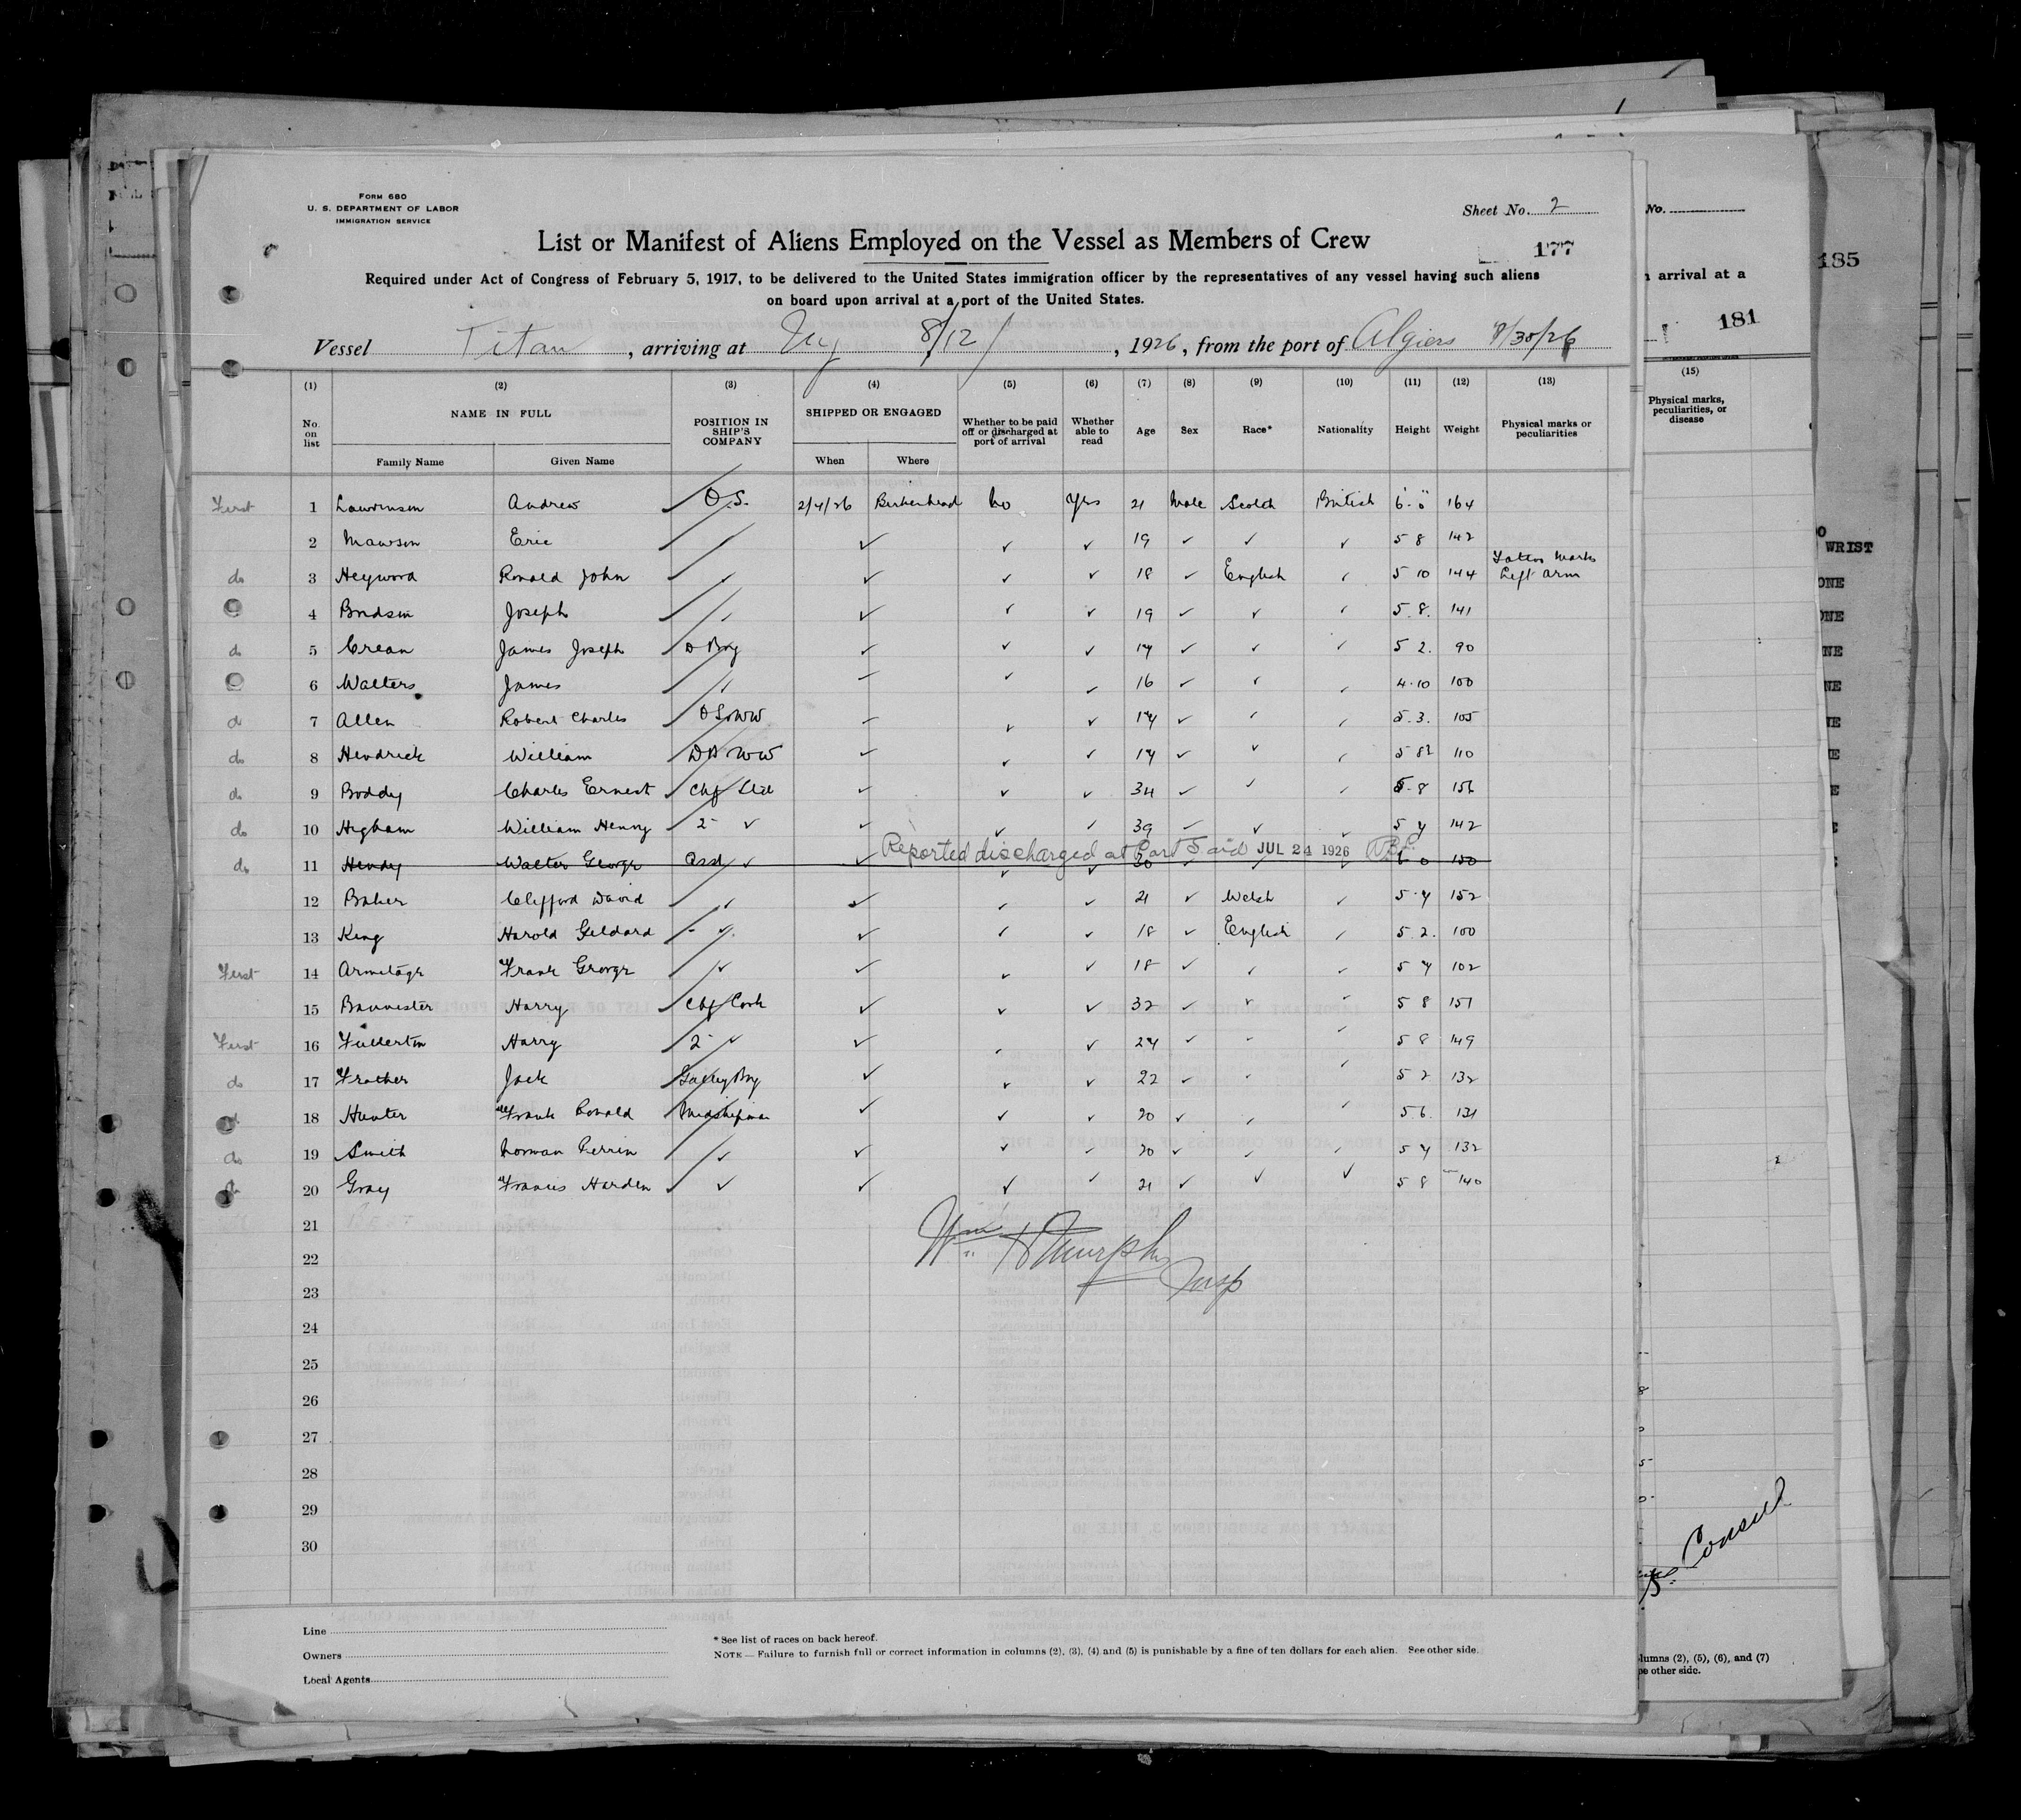 FORM 680
U. S. DEPARTMENT OF LABOR
IMMIGRATION SERVICE
Sheet No. 2
No.
List or Manifest of Aliens Employed on the Vessel as Members of Crew
177
185
Required under Act of Congress of February 5, 1917, to be delivered to the United States immigration officer by the representatives of any vessel having such aliens
on board upon arrival at a port of the United States.
arrival at a
181
Vessel Titan, arriving at Ny 8/12/, 1926, from the port of Algiers /30/26
(1) (2) (3) (4) (5) (6) (7) (8) (9) (10) (11) (12) (13) (15)
No. on list NAME IN FULL POSITION IN SHIP'S COMPANY SHIPPED OR ENGAGED Whether to be paid off or discharged at port of arrival Whether able to read Age Sex Race* Nationality Height Weight Physical marks or peculiarities
Physical marks, peculiarities, or disease
Family Name Given Name When Where
First 1 Andrew O.S. 2/4/26 Birkenhead No Yes 21 Male Scotch British 6-0 164
2 Mawson Eric ✓ ✓ ✓ 19 ✓ ✓ ✓ 5 8 142
do 3 Heywood Ronald John ✓ ✓ ✓ ✓ 18 ✓ English ✓ 5 10 144 Tattoo Marks Left arm
4 Joseph ✓ ✓ ✓ ✓ 19 ✓ ✓ ✓ 5.8. 141
do 5 Crean James Joseph D Boy ✓ ✓ ✓ 17 ✓ ✓ ✓ 5 2. 90
6 Walters James ✓ ✓ ✓ ✓ 16 ✓ ✓ ✓ 4.10 100
do 7 Allen Robert Charles ✓ ✓ ✓ 17 ✓ ✓ ✓ 5.3. 105
do 8 Hendrick William ✓ ✓ ✓ 17 ✓ ✓ ✓ 5 8½ 110
do 9 Boddy Charles Ernest Chf Std ✓ ✓ ✓ 34 ✓ ✓ ✓ 5-8 156
do 10 Higham William Henry 2- ✓ ✓ ✓ ✓ 39 ✓ ✓ ✓ 5 7 142
Reported discharged at Port Said JUL 24 1926
do 11 Hendy Walter George Asst ✓ ✓ ✓ ✓ 20 ✓ ✓ ✓ 6 0 150
12 Baker Clifford David ✓ ✓ ✓ ✓ 21 ✓ Welsh ✓ 5.7 152
13 King Harold Geldard ✓ ✓ ✓ ✓ 18 ✓ English ✓ 5.2. 100
First 14 Armitage Frank George ✓ ✓ ✓ ✓ 18 ✓ ✓ ✓ 5 7 102
15 Bannister Harry Chf Cook ✓ ✓ ✓ 32 ✓ ✓ ✓ 5 8 151
First 16 Fullerton Harry 2- ✓ ✓ ✓ ✓ 27 ✓ ✓ ✓ 5 8 149
do 17 Jack Galley Boy ✓ ✓ ✓ 22 ✓ ✓ ✓ 5 2 132
18 Hunter Frank Ronald Midshipman ✓ ✓ ✓ 20 ✓ ✓ ✓ 5 6. 131
do 19 Smith Norman Perrin ✓ ✓ ✓ ✓ 20 ✓ ✓ ✓ 5 7 132
20 Gray Francis Harden ✓ ✓ ✓ ✓ 21 ✓ ✓ ✓ 5 8 140
21
22
23
24
25
26
27
28
29
30
Wm Murphy
Insp
WRIST
Consul
Line
Owners
Local Agents
* See list of races on back hereof.
NOTE — Failure to furnish full or correct information in columns (2), (3), (4) and (5) is punishable by a fine of ten dollars for each alien. See other side.
(2), (5), (6), and (7)
other side.